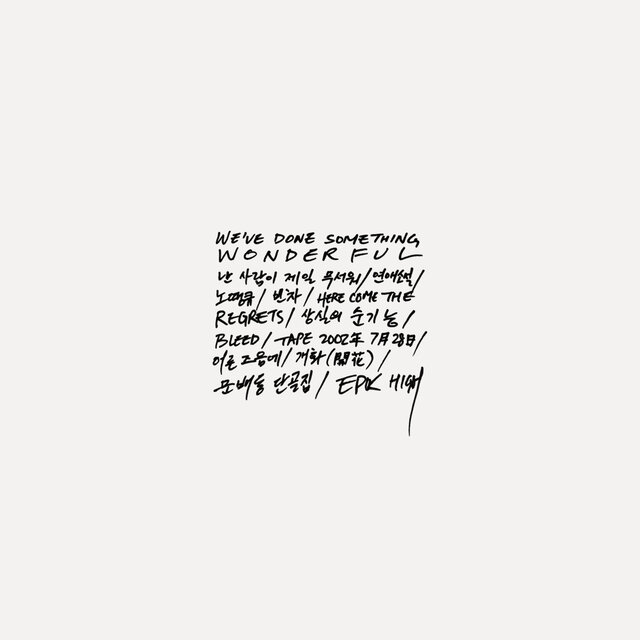 WE'VE DONE SOMETHING
WONDERFUL
난 사람이 제일 무서워/연애소설/
노땡큐/빈차/HERE COME THE
REGRETS/상실의 순기능/
BLEED/TAPE 2002年 7月 28日/
어른 즈음에/개화(開花)/
문배동 단골집/EPIK HIGH